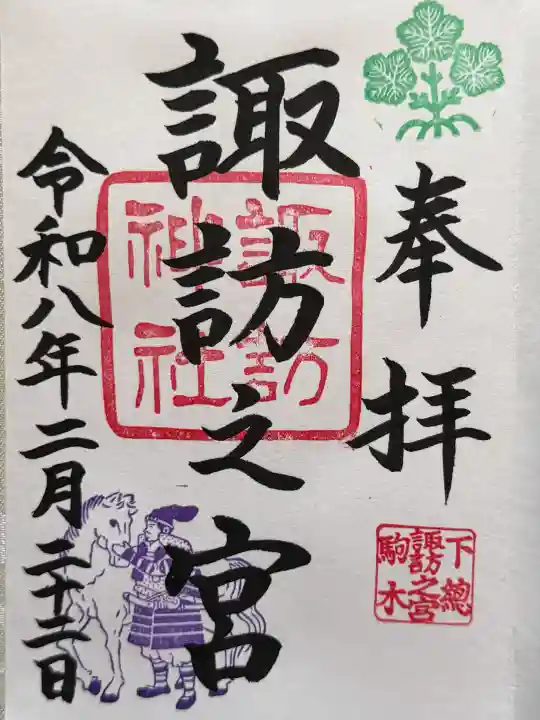 奉拝
諏訪之宮
諏訪
神社
令和八年二月二十二日
下總
諏訪之宮
駒木